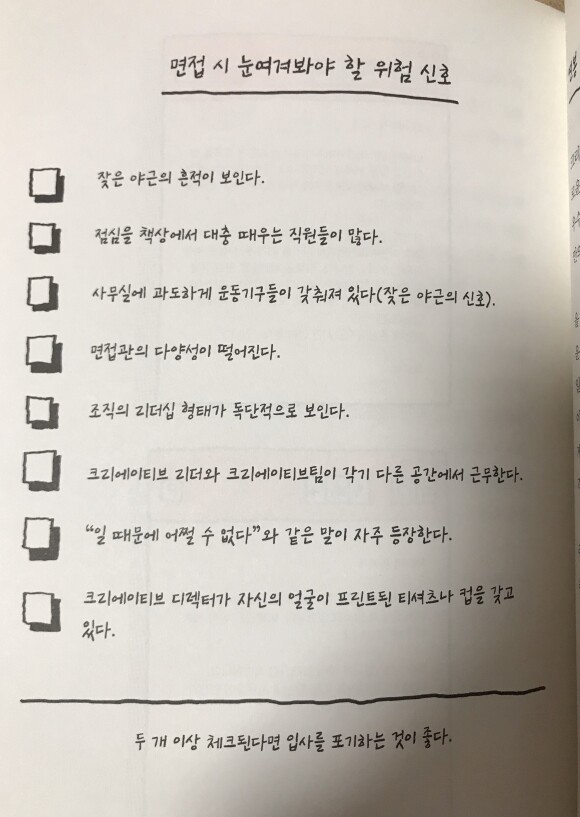 면접 시 눈여겨봐야 할 위험 신호
잦은 야근의 흔적이 보인다.
점심을 책상에서 대충 때우는 직원들이 많다.
사무실에 과도하게 운동기구들이 갖춰져 있다(잦은 야근의 신호).
면접관의 다양성이 떨어진다.
조직의 리더십 형태가 독단적으로 보인다.
크리에이티브 리더와 크리에이티브팀이 각기 다른 공간에서 근무한다.
“일 때문에 어쩔 수 없다”와 같은 말이 자주 등장한다.
크리에이티브 디렉터가 자신의 얼굴이 프린트된 티셔츠나 컵을 갖고
있다.
두 개 이상 체크된다면 입사를 포기하는 것이 좋다.